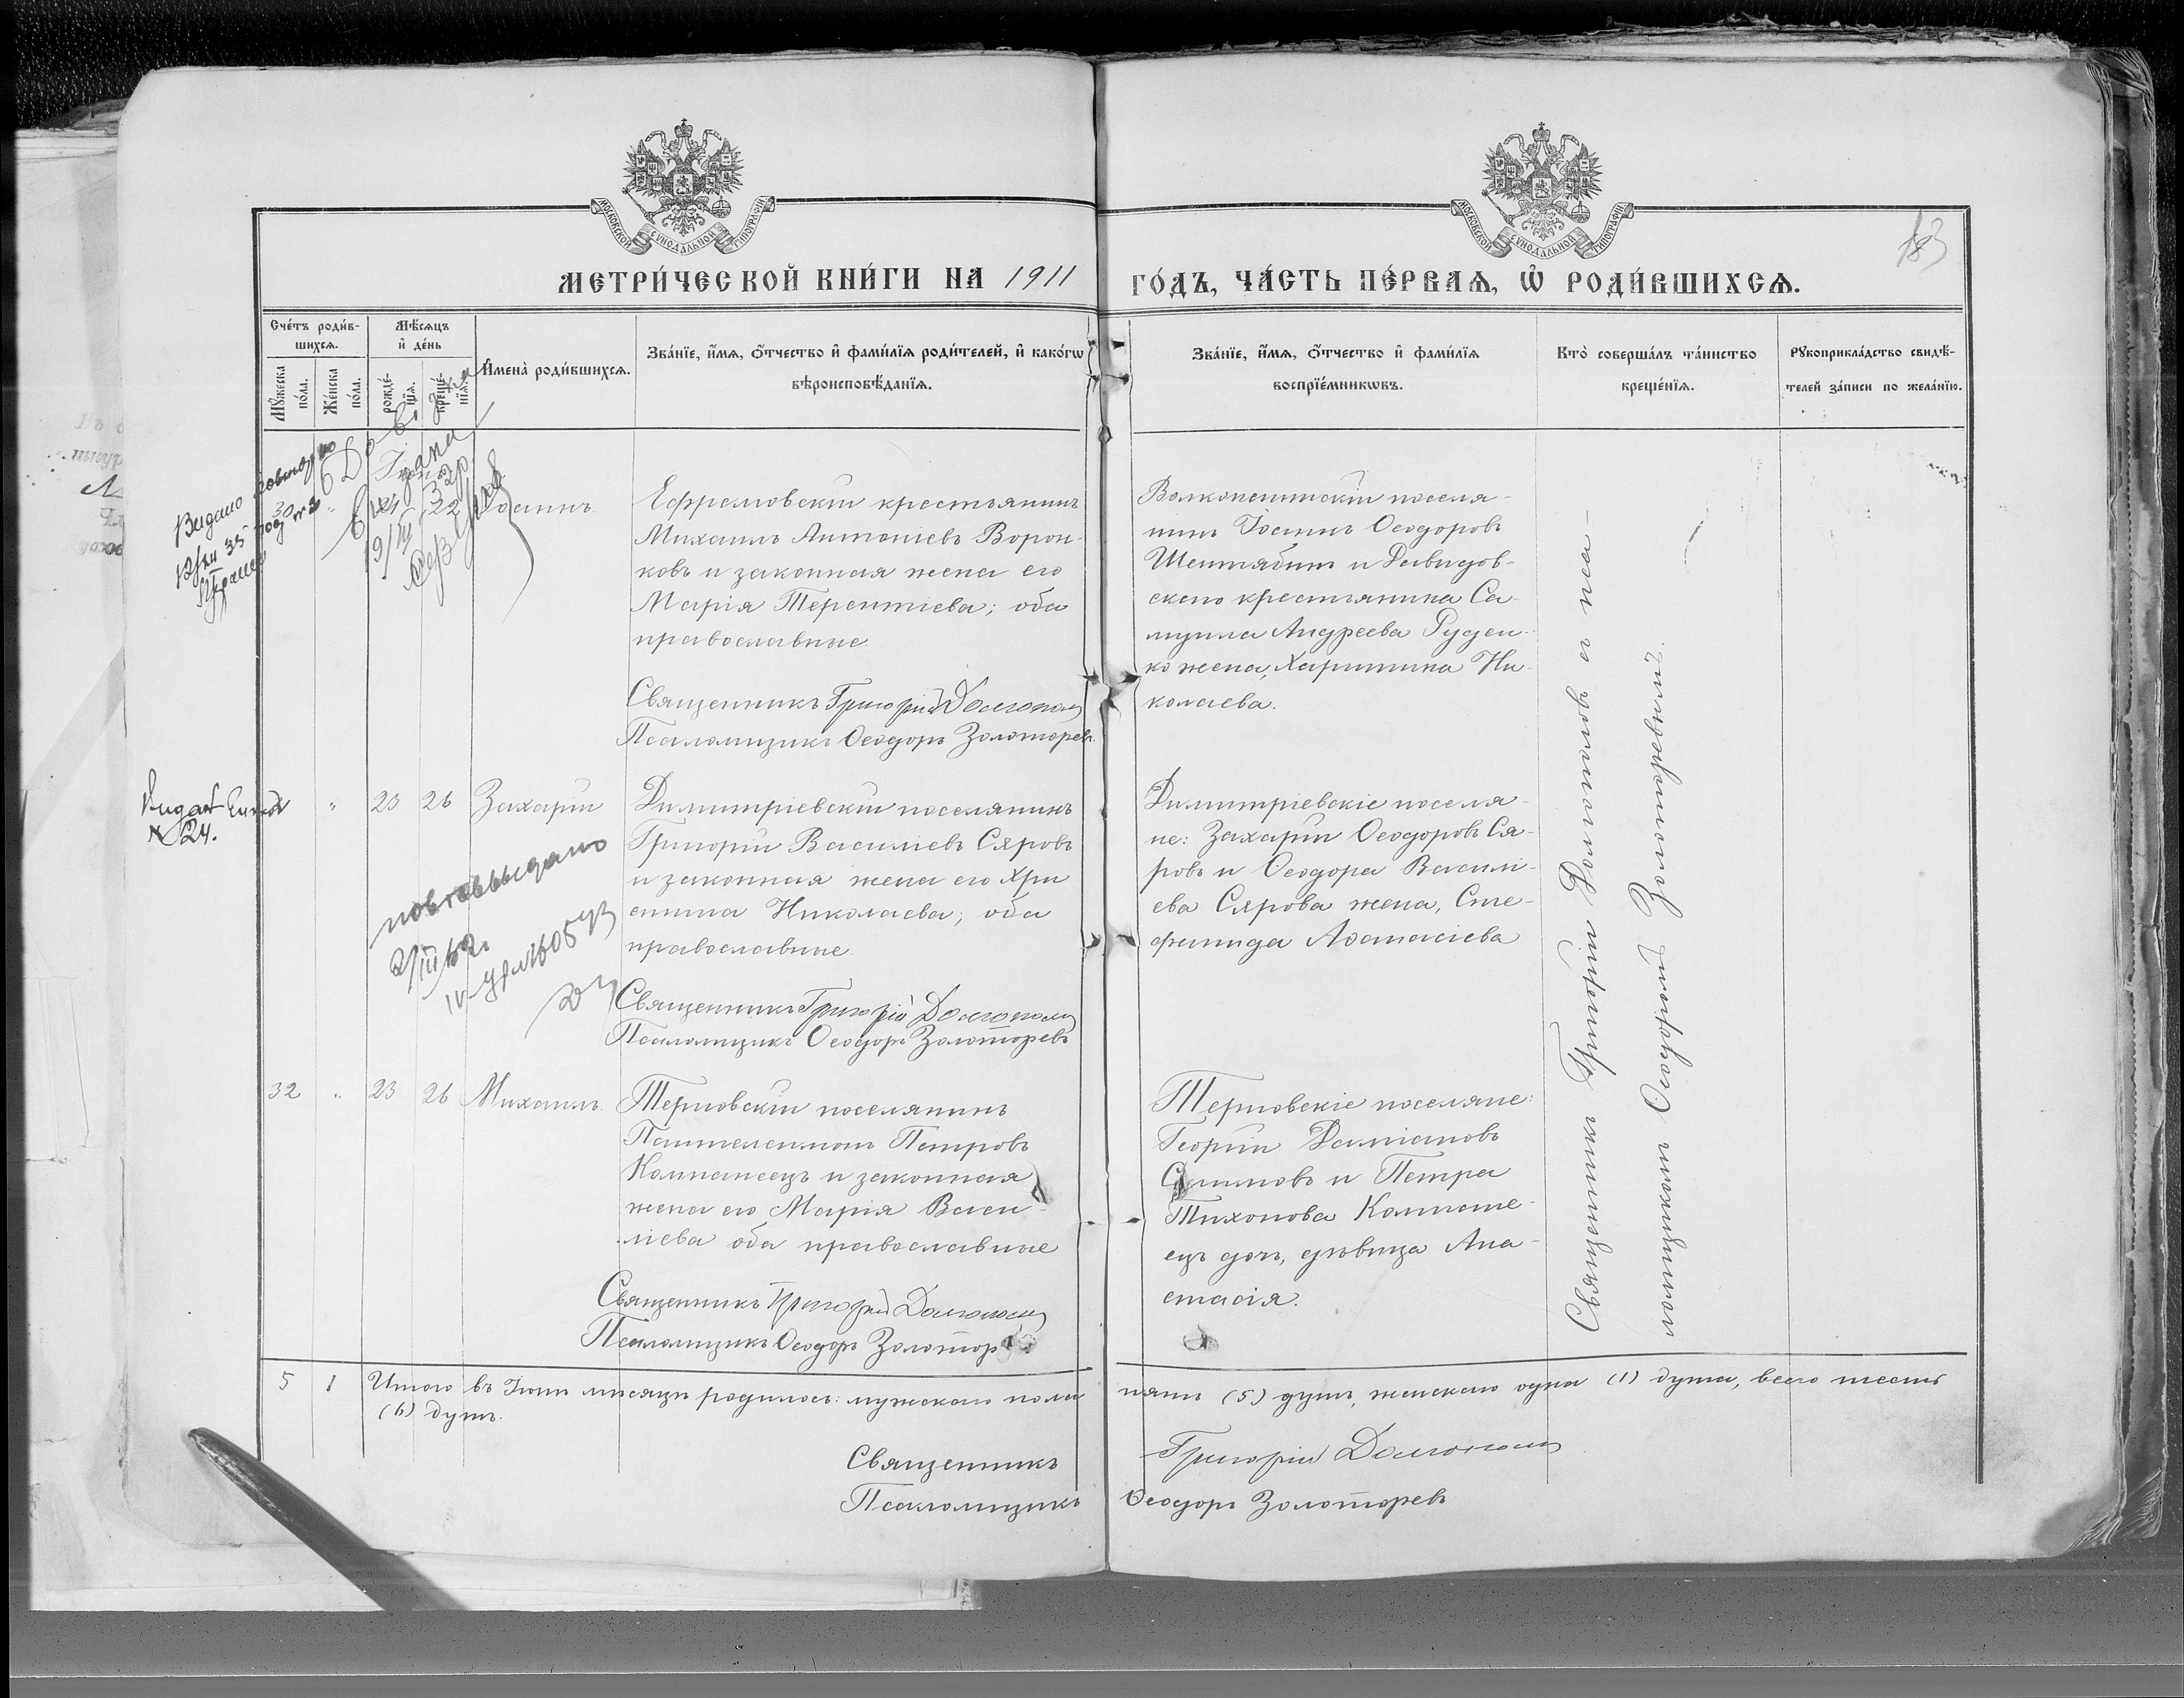 МОСКОВСКОЙ СУНОДАЛЬНОЙ ТИПОГРАФІИ
МОСКОВСКОЙ СУНОДАЛЬНОЙ ТИПОГРАФІИ
183
МЕТРИ́ЧЕСКОЙ КНИ́ГИ НА 1911 ГО́ДЪ, ЧА́СТЬ ПЕ́РВАѦ, Ѡ҆ РОДИ́ВШИХСѦ.
Сче́тъ роди́вшихсѧ.
Мꙋ́жеска по́ла.
Же́нска по́ла.
Мѣ́сѧцъ и҆ де́нь
рожде́нїѧ.
креще́нїѧ.
И҆мена̀ роди́вшихсѧ.
Зва́нїе, и҆́мѧ, ѻ҆́тчество и҆ фами́лїѧ роди́телей, и҆ како́гѡ
вѣроисповѣ́данїѧ.
Зва́нїе, и҆́мѧ, ѻ҆́тчество и҆ фами́лїѧ
воспрїе́мникѡвъ.
Кто̀ соверша́лъ та́инство
креще́нїѧ.
Рꙋкоприкла́дство свидѣ́-
телей за́писи по жела́нїю.
Видано
30 " 22 Іоаннъ
Ефремовскій крестьянинъ
Михаилъ Антоніевъ Ворон-
ковъ и законная жена его
Марія Терентіева; оба
православные.
Священникъ Григорій Долгополъ
Псаломщикъ Ѳеодоръ Золоторевъ
поселя-
нинъ Іоаннъ Ѳеодоровъ
и Давидов-
скаго крестьянина Са-
муила Андреева Руден-
ко жена, Харитина Ни-
колаева.
Священникъ Григорій Долгополовъ съ пса-
ломщикомъ Ѳеодоромъ Золоторевымъ.
№ 24.
" 23 26 Захарій
Димитріевскій поселянинъ
Григорій Василіевъ Сяровъ
и законная жена его Хри
стина Николаева; оба
православные.
повтор выдано
Священникъ Григорій Долгополъ
Псаломщикъ Ѳеодоръ Золоторевъ
Димитріевскіе поселя-
не: Захарій Ѳеодоровъ Ся-
ровъ и Ѳеодора Василі-
ева Сярова жена, Сте-
фанида Аѳанасіева
32 " 23 26 Михаилъ.
Терновскій поселянинъ
Пантелеимонъ Петровъ
Компанеецъ и законная
жена его Марія Васи-
ліева оба православные
Священникъ Григорій Долгополъ
Псаломщикъ Ѳеодоръ Золотор
Терновскіе поселяне:
Георгій Даміановъ
и Петра
Тихонова Компане-
ецъ дочь, дѣвица Ана-
стасія.
5 1 Итого въ Іюнѣ мѣсяцѣ родилось: мужскаго пола пять (5) душъ, женскаго одна (1) душа, всего шесть
(6) душъ.
Священникъ Григорій Долгополъ
Псаломщикъ Ѳеодоръ Золоторевъ